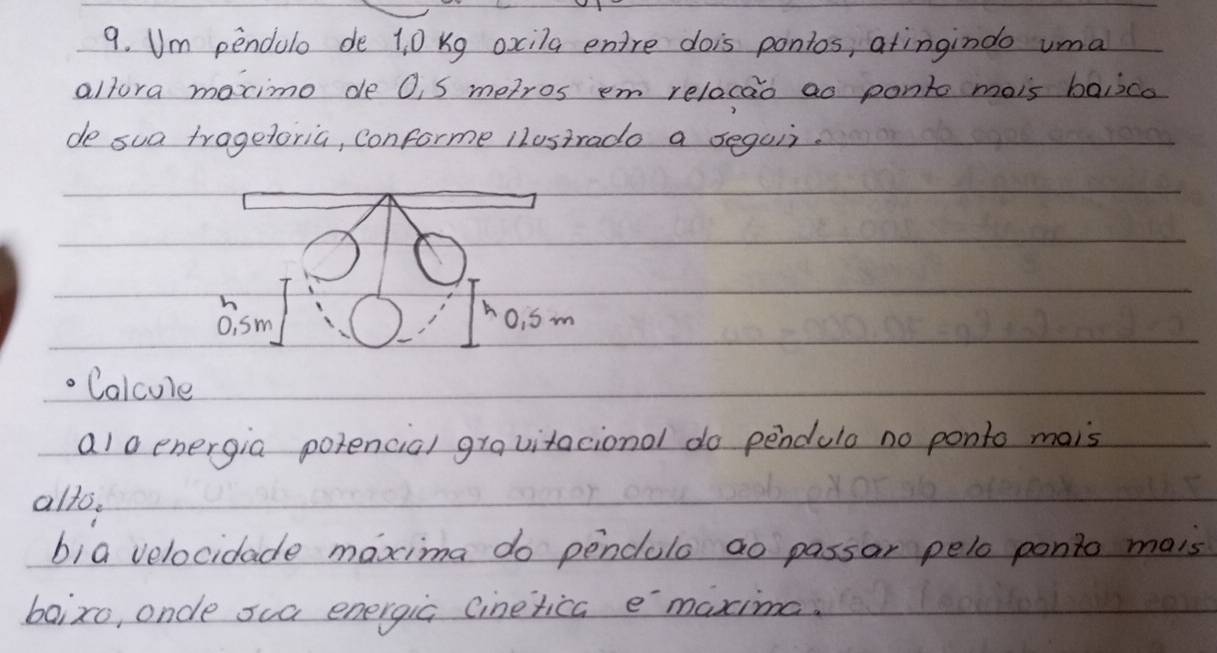 9. Um pêndulo de 1,0 Kg oxila entre dois pontos, atingindo uma
altura máximo de 0,5 metros em relação ao ponto mais baixo
de sua tragetoria, conforme ilustrado a seguir.
h
0,5m
h 0,5 m
• Calcule
a) a energia potencial gravitacional do pêndulo no ponto mais
alto;
b) a velocidade máxima do pêndulo ao passar pelo ponto mais
baixo, onde sua energia cinética é máxima.